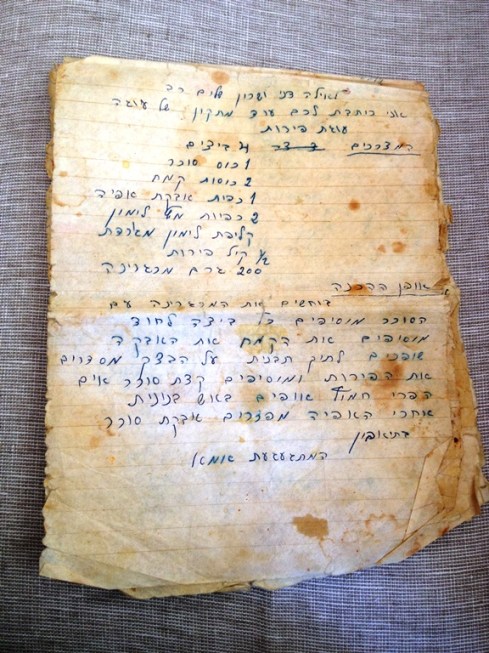 לאילה צבי ושרון שלום רב
אני כותבת לכם עוד מתכון של עוגה
עוגת פירות
המצרכים 4 ביצים
1 כוס סוכר
2 כוסות קמח
1 כפית אבקת אפיה
2 כפיות מיץ לימון
קליפת לימון מגורדת
1/2 קילו פירות
200 גרם מרגרינה
אופן ההכנה
בוחשים את המרגרינה עם
הסוכר מוסיפים כל ביצה לחוד
מוסיפים את הקמח את האבקה
שופכים לתוך תבנית על הבצק מסדרים
את הפירות ומוסיפים קצת סוכר אים
הפרי חמוץ אופים באש בנונית
אחרי האפיה מפזרים אבקת סוכר
בתיאבון
המתגעגעת אמא